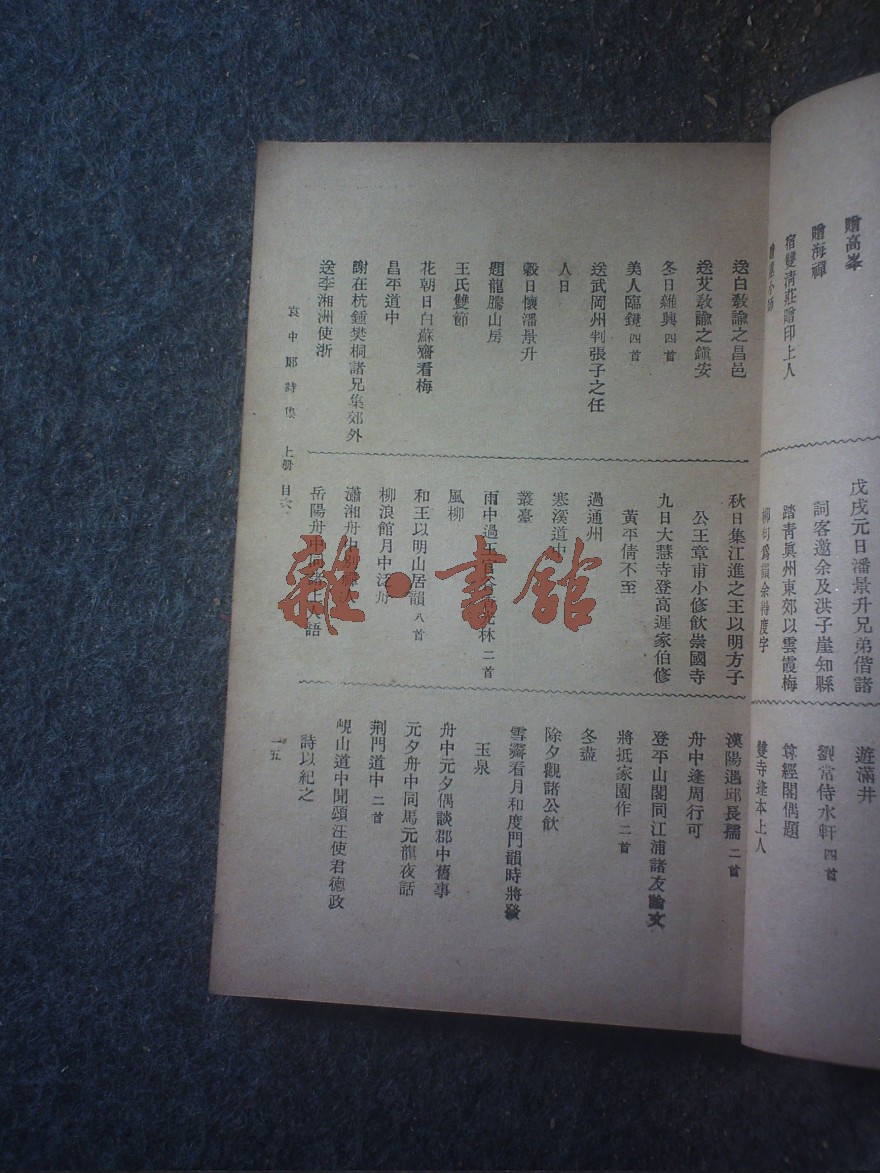 贈高峯
贈海禪
宿雙清莊贈印上人
戊戌元日潘景升兄弟偕諸
詞客邀余及洪子崖知縣
踏青眞州東郊以雲霞梅
柳句爲韻余得度字
遊滿井
劉常侍水軒 四首
尊經閣偶題
雙寺逢本上人
送白敎諭之昌邑
送艾敎諭之鎭安
冬日雜興 四首
美人臨鏡 四首
送武岡州判張子之任
人日
穀日懷潘景升
題龍騰山房
王氏雙節
花朝日白蘇齋看梅
昌平道中
謝在杭鍾樊桐諸兄集郊外
送李湘洲使浙
秋日集江進之王以明方子
公王章甫小修飮崇國寺
九日大慧寺登高遲家伯修
黃平倩不至
過通州
寒溪道中
叢臺
雨中過 林 二首
風柳
和王以明山居韻 八首
柳浪館月中泛舟
瀟湘舟中 人
岳陽舟中同諸上人語
漢陽遇邱長孺 二首
舟中逢周行可
登平山閣同江浦諸友論文
將抵家園作 二首
冬盡
除夕觀諸公飮
雪霽看月和度門韻時將發
玉泉
舟中元夕偶談郡中舊事
元夕舟中同馬元龍夜話
荆門道中 二首
峴山道中聞頌汪使君德政
詩以紀之
袁中郎詩集 上册 目次
一五
雜·書館